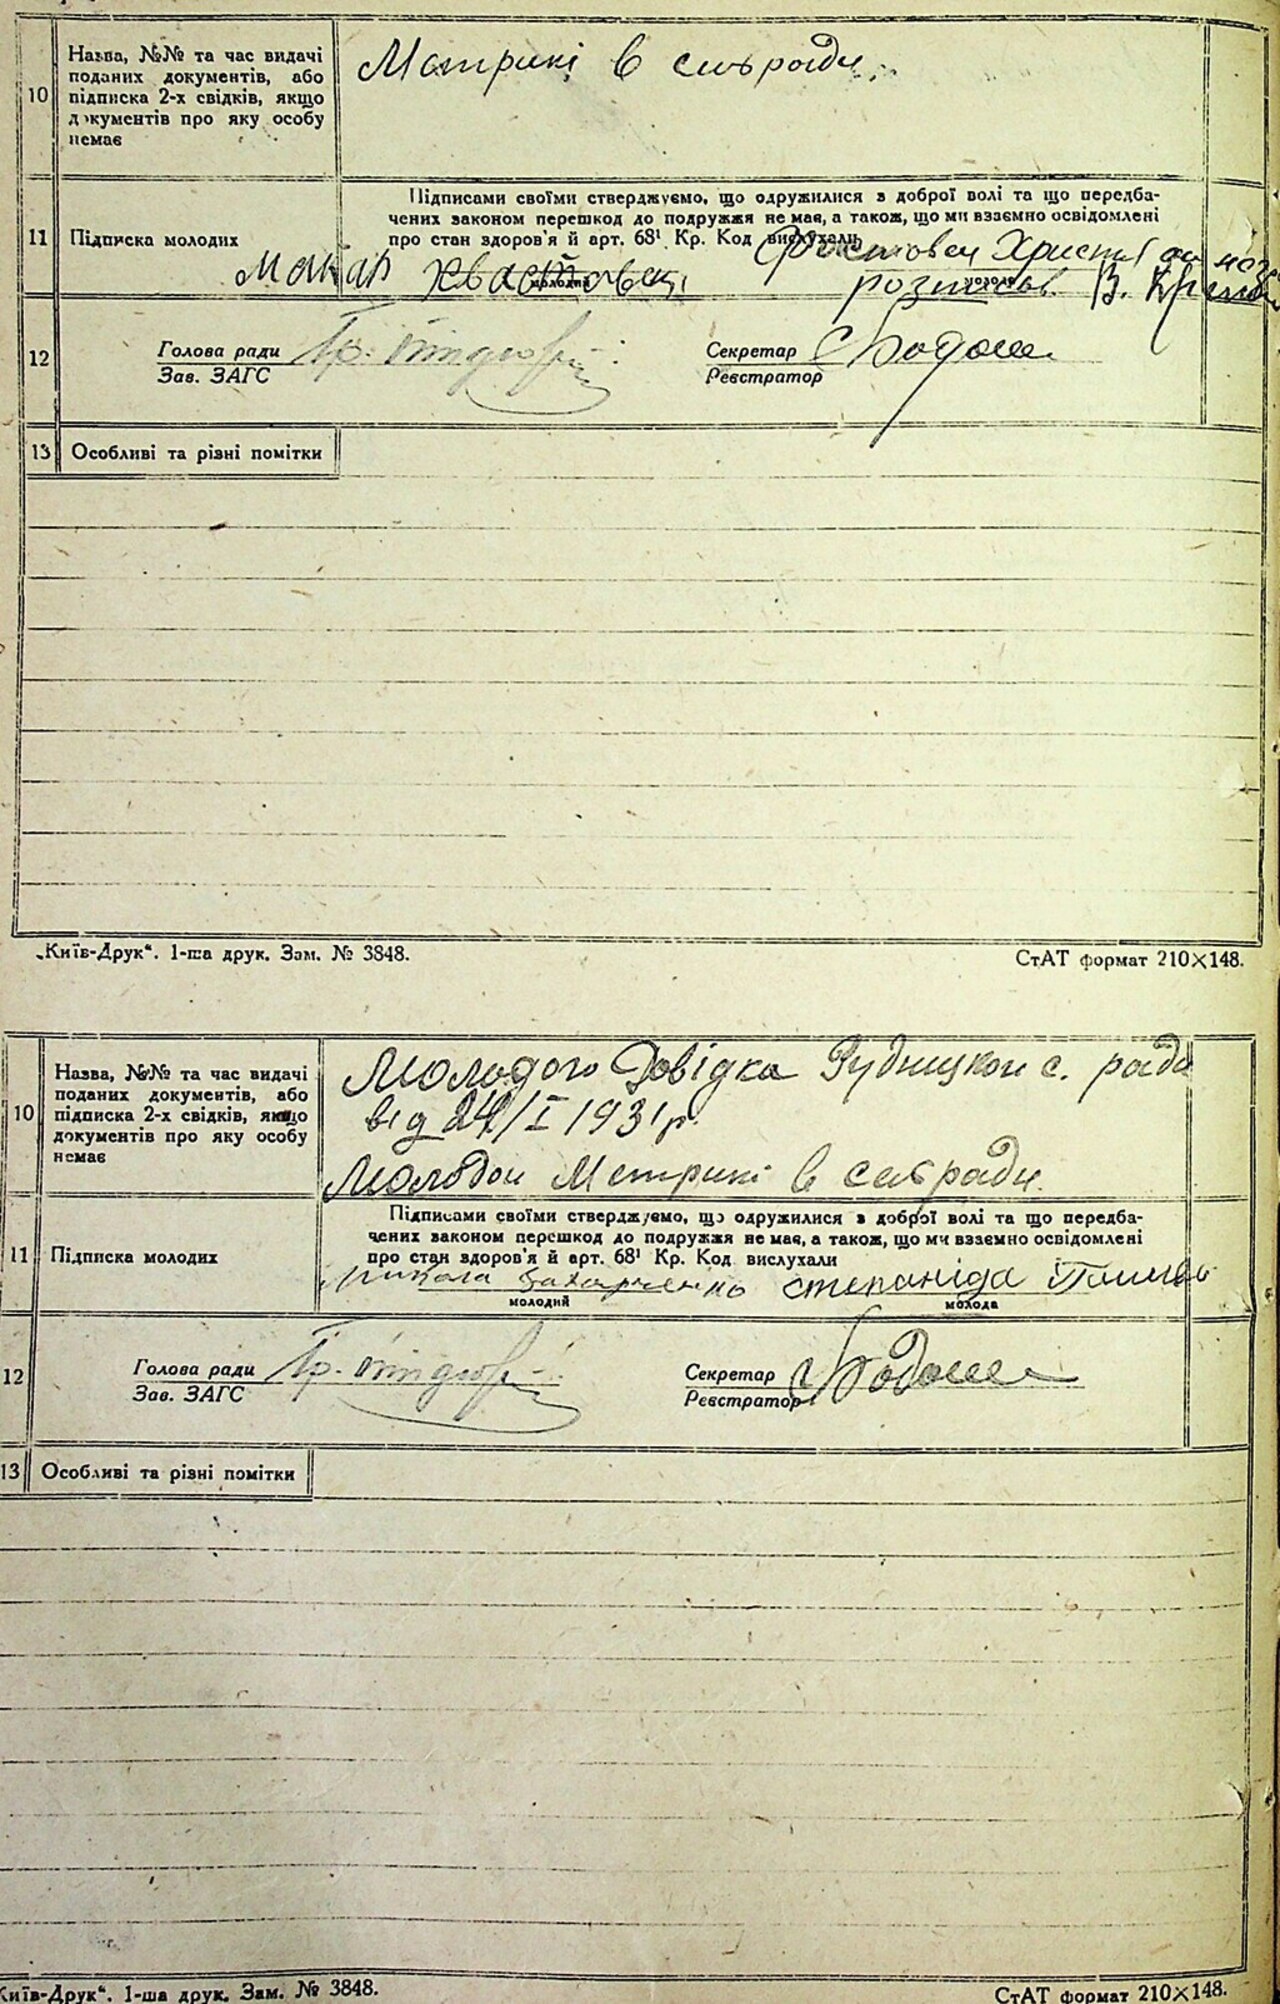 10
Назва, №№ та час видачі
поданих документів, або
підписка 2-х свідків, якщо
документів про яку особу
немає
Метрики в сельради.
11
Підписка молодих
Підписами своїми стверджуємо, що одружилися з доброї волі та що передба-
чених законом перешкод до подружжя не має, а також, що ми взаємно освідомлені
про стан здоров'я й арт. 68¹ Кр. Код вислухали
Макар Хвастовец
Христя
розписав В.
молодий
молода
12
Голова ради
Зав. ЗАГС
Гр.
Секретар
Реєстратор
13
Особливі та різні помітки
„Київ-Друк“. 1-ша друк. Зам. № 3848.
СтАТ формат 210×148.
10
Назва, №№ та час видачі
поданих документів, або
підписка 2-х свідків, якщо
документів про яку особу
немає
Молодого Довідка Рудницкои с. ради
від 24/I 1931 р.
Молодои Метрики в сельради.
11
Підписка молодих
Підписами своїми стверджуємо, що одружилися з доброї волі та що передба-
чених законом перешкод до подружжя не має, а також, що ми взаємно освідомлені
про стан здоров'я й арт. 68¹ Кр. Код вислухали
Микола Захарченко Степаніда
молодий
молода
12
Голова ради
Зав. ЗАГС
Гр.
Секретар
Реєстратор
13
Особливі та різні помітки
Київ-Друк“. 1-ша друк. Зам. № 3848.
СтАТ формат 210×148.